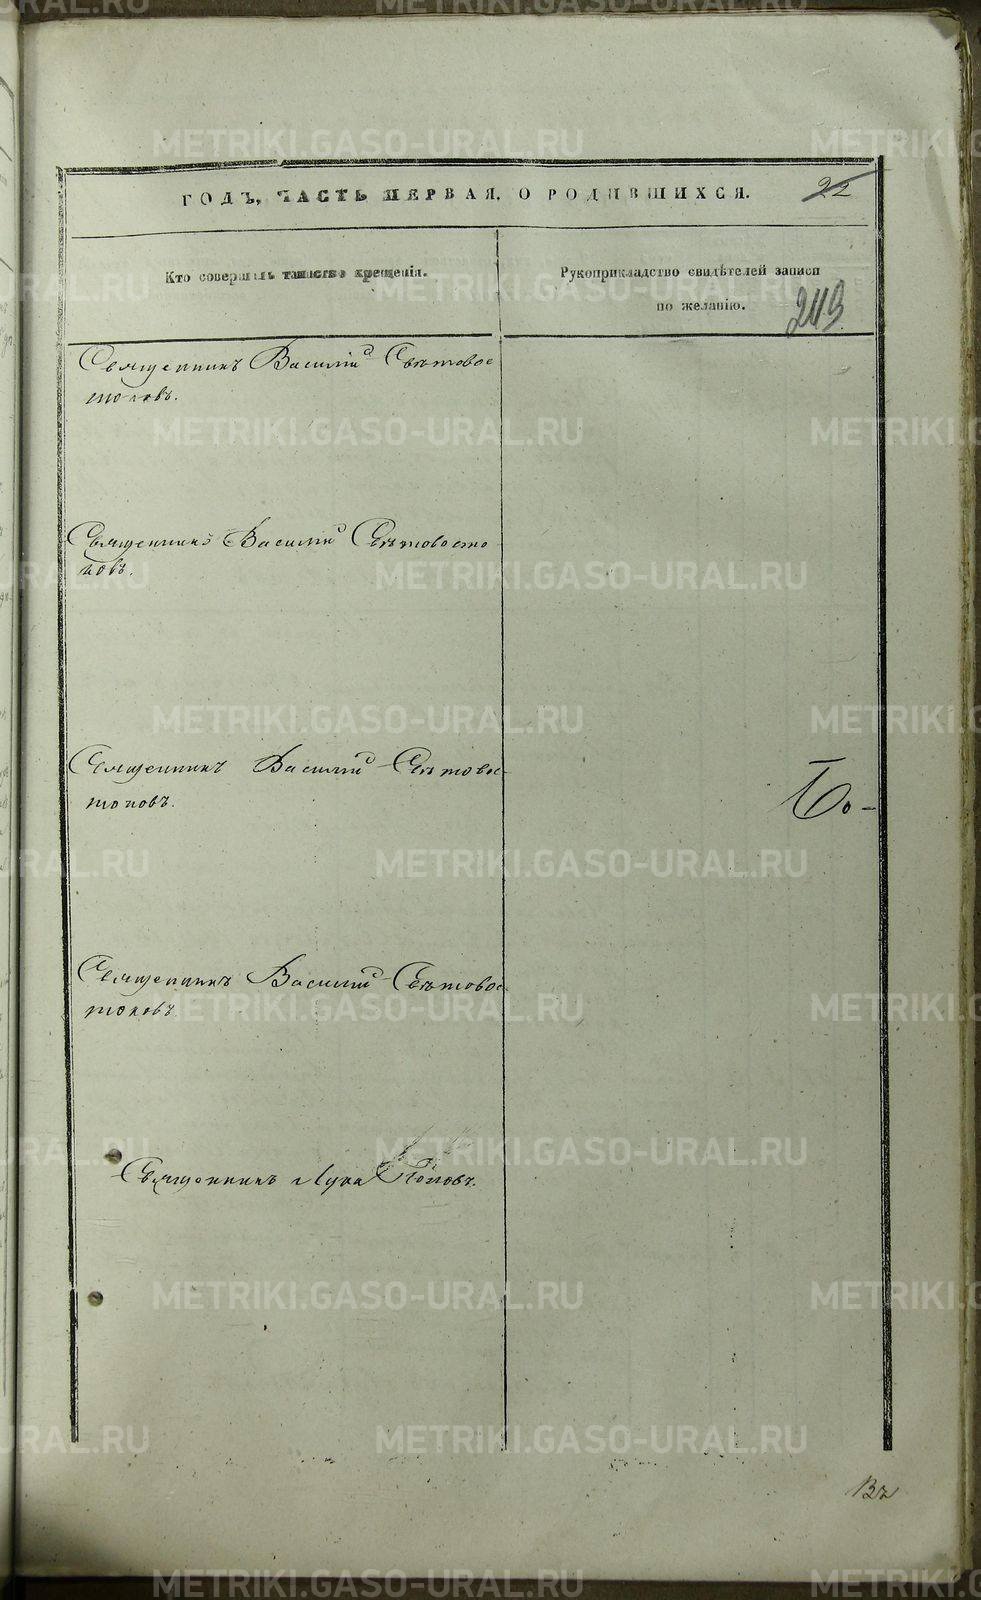 ГОДЪ, ЧАСТЬ ПЕРВАЯ, О РОДИВШИХСЯ. 22
Кто совершалъ таинство крещенія.
Рукоприкладство свидѣтелей записи
по желанію.
243
Священникъ Василій Свѣтовос
токовъ.
Священникъ Василій Свѣтовосто
ковъ.
Священникъ Василій Свѣтовос-
токовъ.
Бо-
Священникъ Василій Свѣтовос
токовъ.
Священникъ Лука Поповъ.
Въ
METRIKI.GASO-URAL.RU